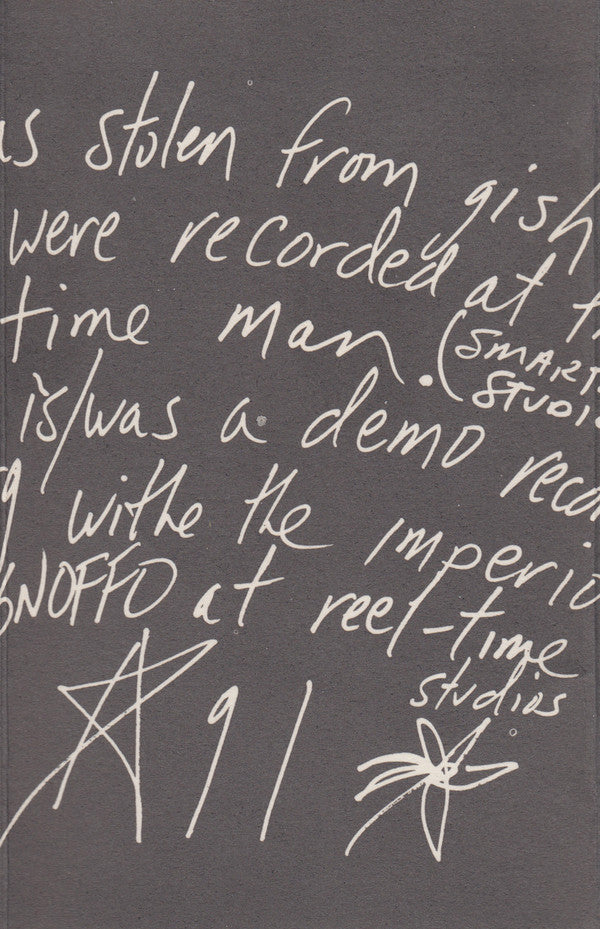 as stolen from gish
were recorded at
time man. (SMART
STUDI
is/was a demo reco
withe the imperio
GNOFFO at reel-time
studios
91